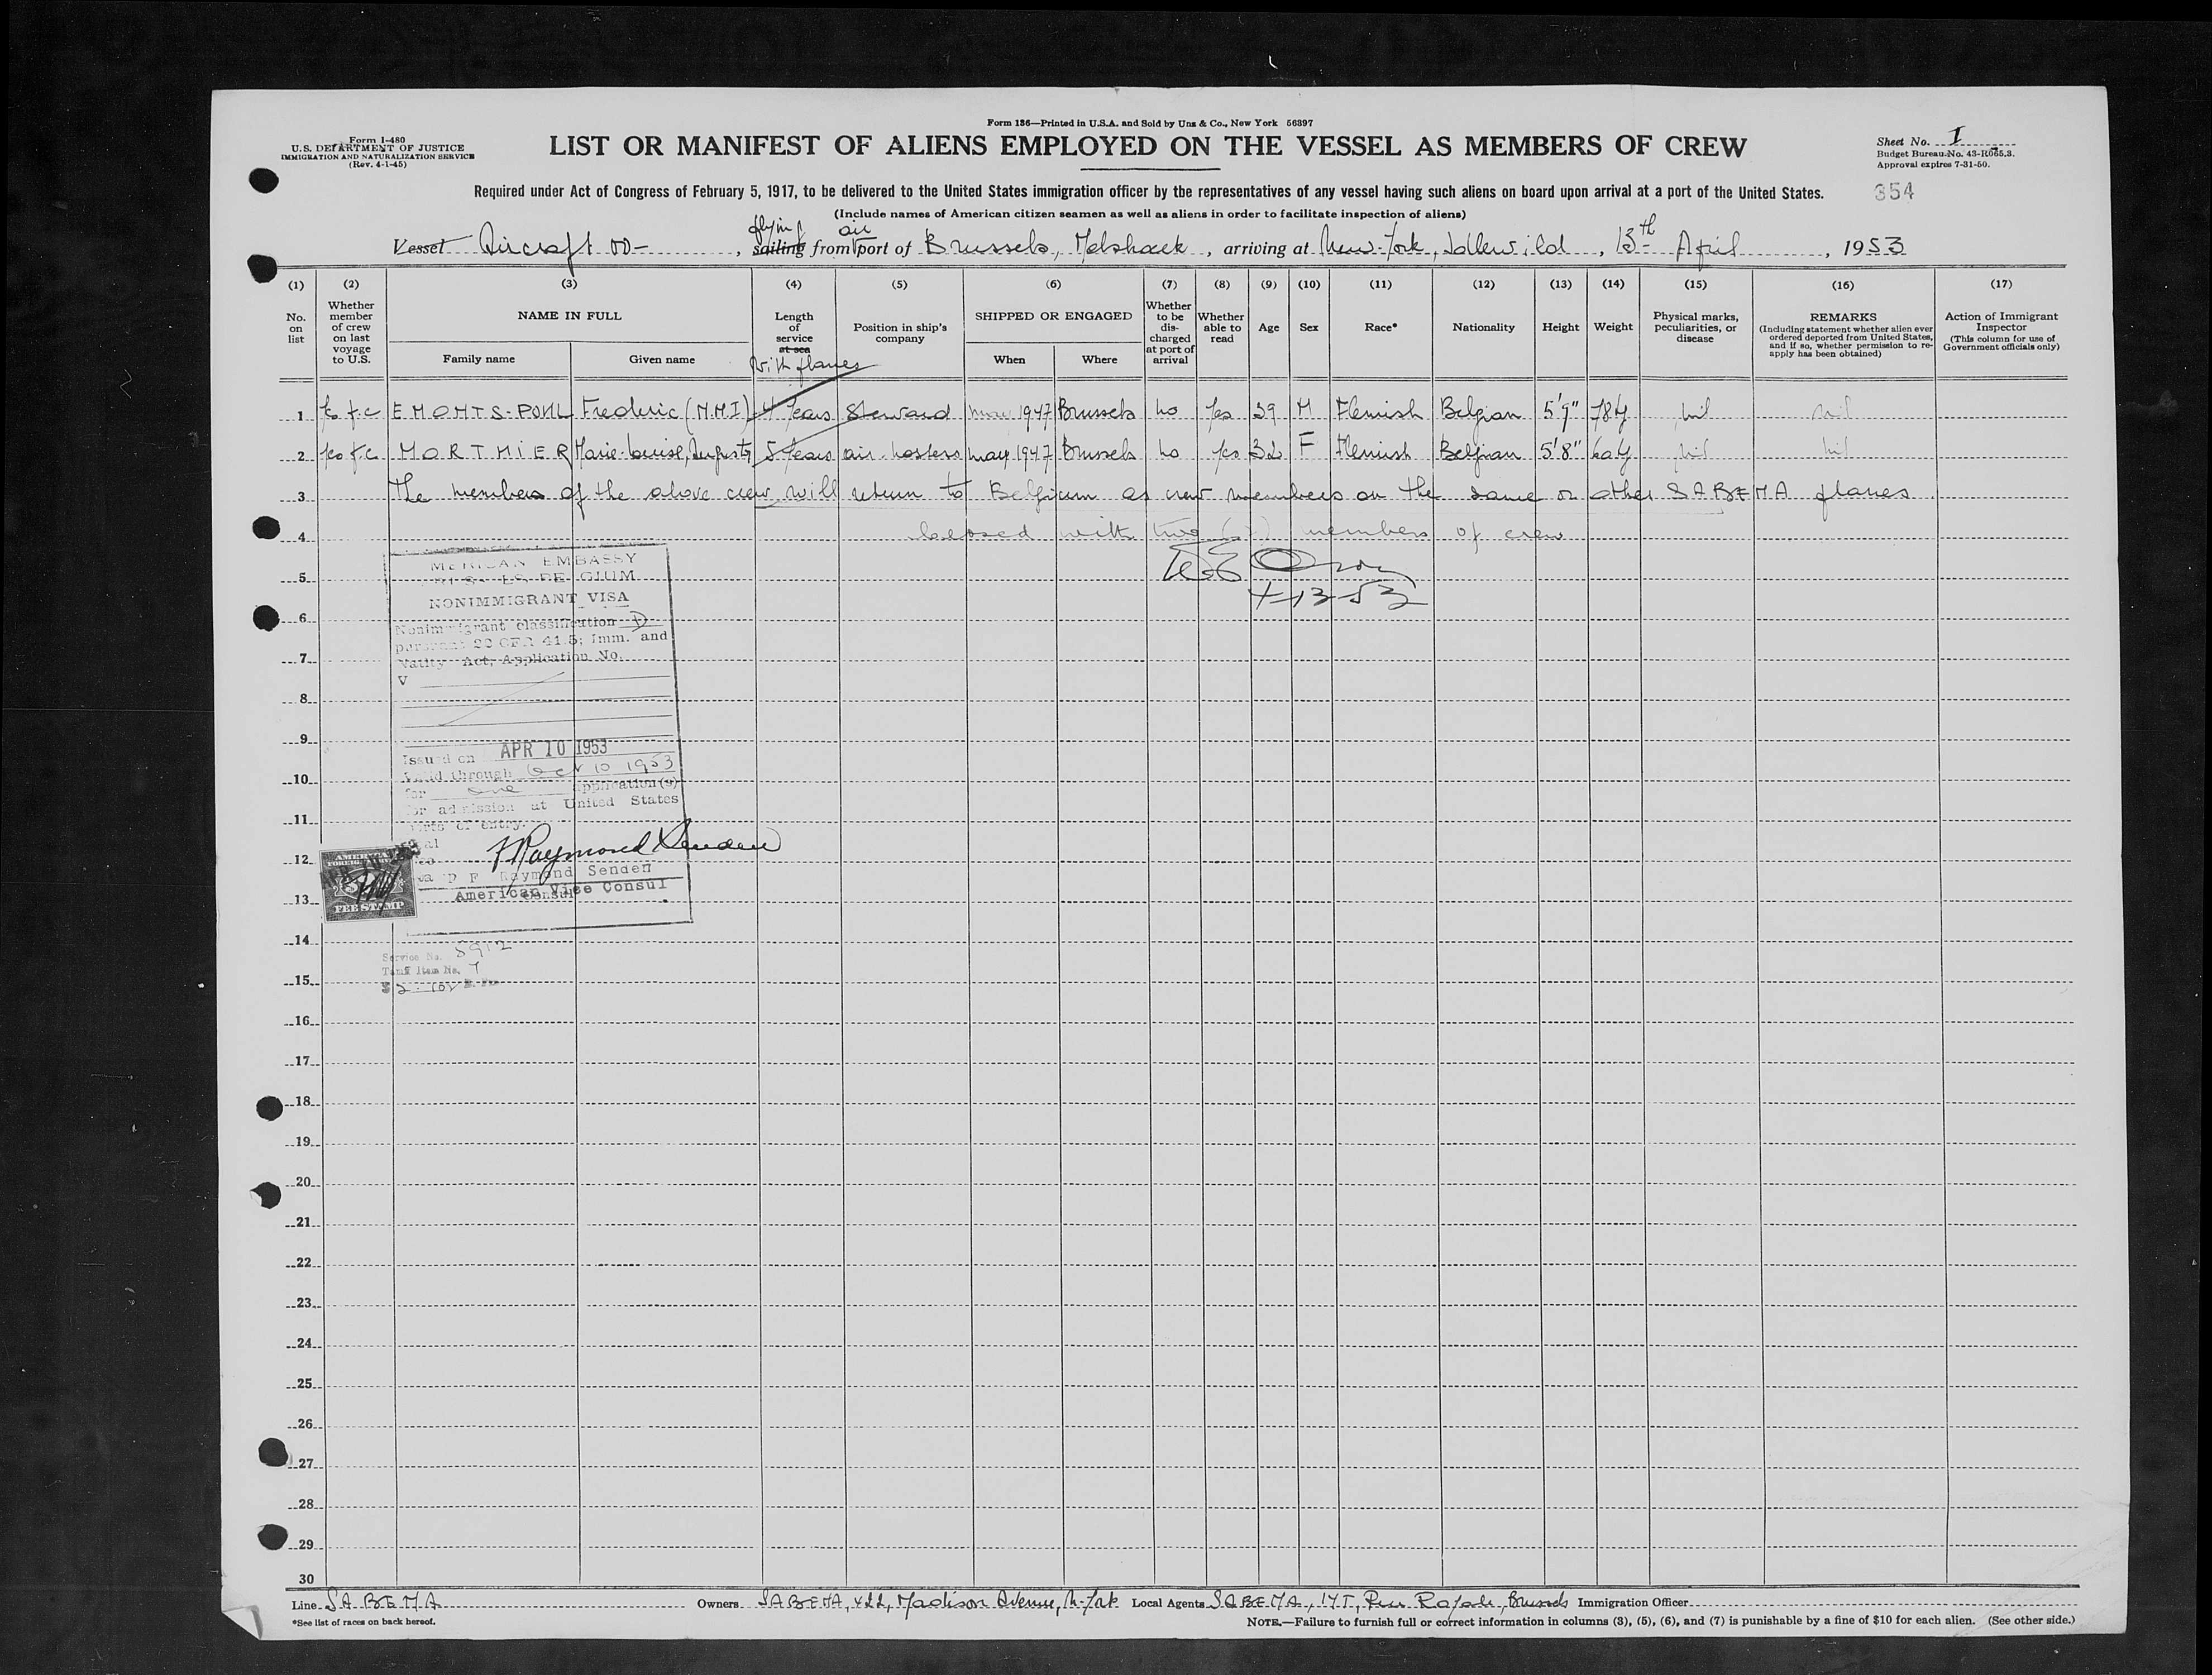 Form 136—Printed in U.S.A. and Sold by Unz & Co., New York 56397
Form I-480
U.S. DEPARTMENT OF JUSTICE
IMMIGRATION AND NATURALIZATION SERVICE
(Rev. 4-1-45)
LIST OR MANIFEST OF ALIENS EMPLOYED ON THE VESSEL AS MEMBERS OF CREW
Sheet No. I
Budget Bureau No. 43-R065.3.
Approval expires 7-31-50.
Required under Act of Congress of February 5, 1917, to be delivered to the United States immigration officer by the representatives of any vessel having such aliens on board upon arrival at a port of the United States.
354
(Include names of American citizen seamen as well as aliens in order to facilitate inspection of aliens)
flying air
Vessel Aircraft OO- , sailing from port of Brussels, Melsbroek , arriving at New-York, Idlewild , 13th April , 1953
(1) (2) (3) (4) (5) (6) (7) (8) (9) (10) (11) (12) (13) (14) (15) (16) (17)
No. on list
Whether member of crew on last voyage to U.S.
NAME IN FULL
Family name
Given name
Length of service at sea
with planes
Position in ship's company
SHIPPED OR ENGAGED
When
Where
Whether to be discharged at port of arrival
Whether able to read
Age
Sex
Race*
Nationality
Height
Weight
Physical marks, peculiarities, or disease
REMARKS
(Including statement whether alien ever ordered deported from United States, and if so, whether permission to reapply has been obtained)
Action of Immigrant Inspector
(This column for use of Government officials only)
1 EMONTS-POHL Frederic (M.M.I) 4 Years Steward may 1947 Brussels no yes 39 M Flemish Belgian 5'9" 78 nil nil
2 MORTMIER Marie-Louise, 5 Years air-hostess may 1947 Brussels no yes 32 F Flemish Belgian 5'8" 60 nil nil
3 The members of the above crew will return to Belgium as crew members on the same or other SABENA planes
4 closed with two (2) members of crew
5
4-13-53
6
7
8
9
10
11
12
13
14
15
16
17
18
19
20
21
22
23
24
25
26
27
28
29
30
AMERICAN EMBASSY
BRUSSELS, BELGIUM
NONIMMIGRANT VISA
Nonimmigrant classification D
pursuant 22 CFR 41.5; Imm. and
Natlty Act, Application No.
V
Issued on APR 10 1953
Valid through Oct 10 1953
for one application(s)
for admission at United States
ports of entry.
F Raymond Senden
F Raymond Senden
American Vice Consul
Consul
AMERICAN
FOREIGN SERVICE
FEE STAMP
Service No. 5912
Tariff Item No. 7
Line SABENA
Owners SABENA, 422, Madison Avenue, N-York
Local Agents SABENA, 145, Rue Royale, Brussels
Immigration Officer
*See list of races on back hereof.
NOTE.—Failure to furnish full or correct information in columns (3), (5), (6), and (7) is punishable by a fine of $10 for each alien. (See other side.)